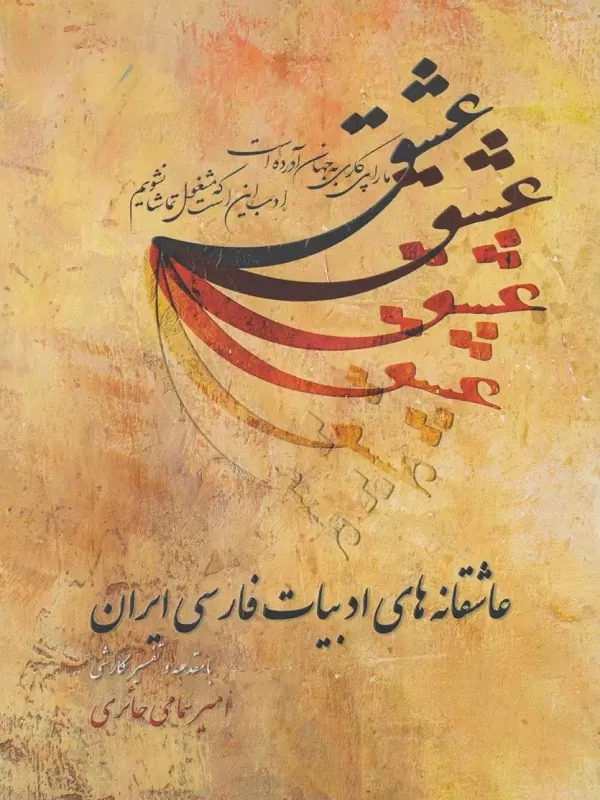 عشق
ما را پی کاری به جهان آورده است
ادب این است که مشغول تماشا نشویم
عشق
عشق
عشق
عشق
عاشقانه های ادبیات فارسی ایران
با مقدمه و تفسیر نگارشی
امیر سامی حائری